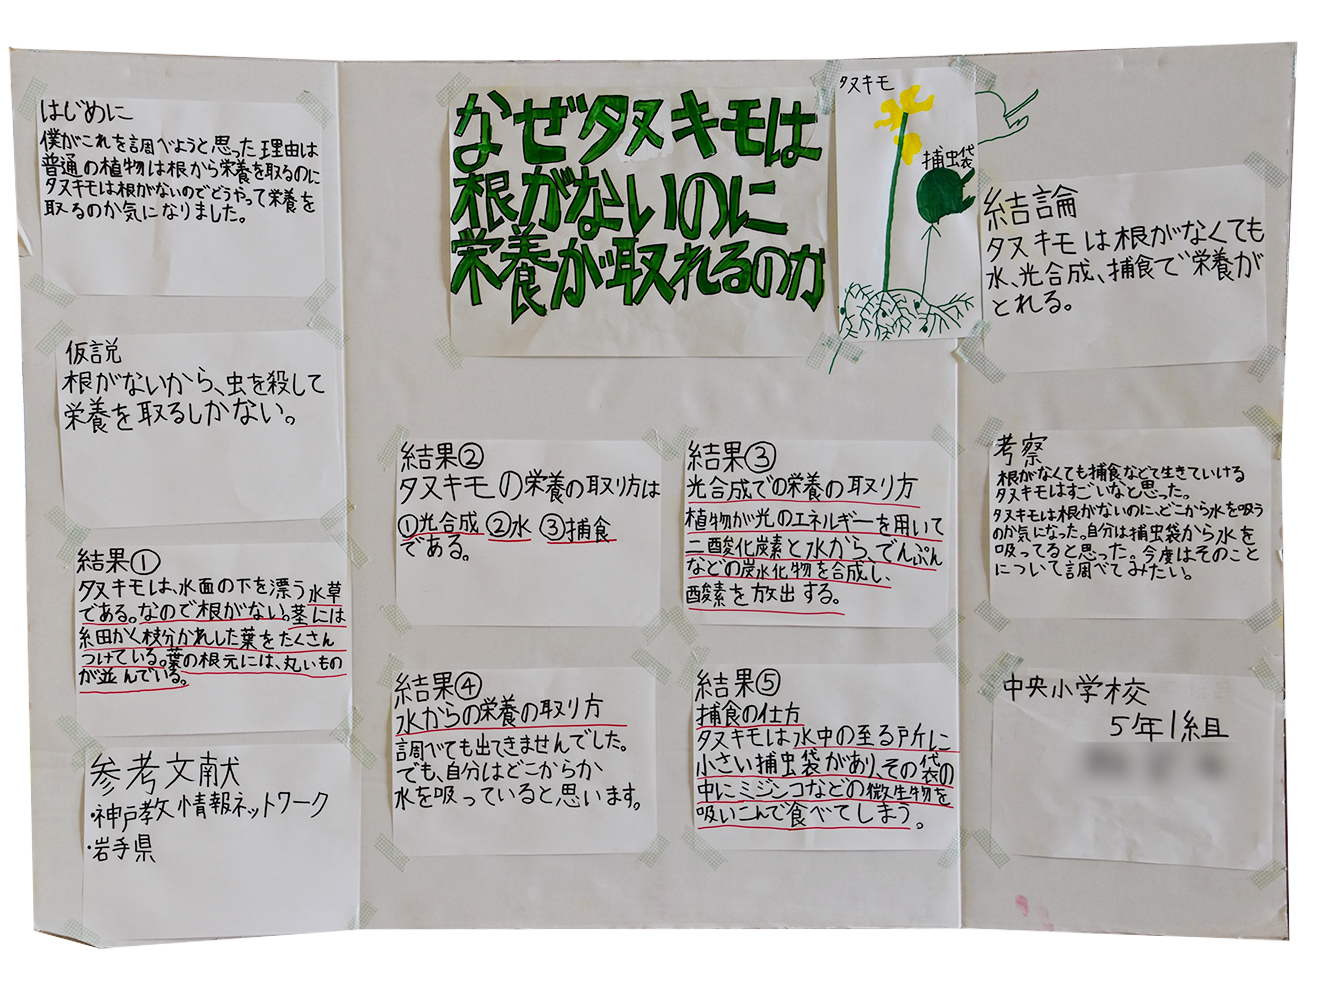 はじめに
僕がこれを調べようと思った理由は
普通の植物は根から栄養を取るのに
タヌキモは根がないのでどうやって栄養を
取るのか気になりました。
仮説
根がないから、虫を殺して
栄養を取るしかない。
結果①
タヌキモは、水面の下を漂う水草
である。なので根がない。茎には
細かく枝分かれした葉をたくさん
つけている。葉の根元には、丸いもの
が並んでいる。
参考文献
・神戸教情報ネットワーク
・岩手県
なぜタヌキモは
根がないのに
栄養が取れるのか
タヌキモ
捕虫袋
結果②
タヌキモの栄養の取り方は
①光合成 ②水 ③捕食
である。
結果③
光合成での栄養の取り方
植物が光のエネルギーを用いて
二酸化炭素と水から、でんぷん
などの炭水化物を合成し、
酸素を放出する。
結果④
水からの栄養の取り方
調べても出てきませんでした。
でも、自分はどこからか
水を吸っていると思います。
結果⑤
捕食の仕方
タヌキモは水中の至る所に
小さい捕虫袋があり、その袋の
中にミジンコなどの微生物を
吸いこんで食べてしまう。
結論
タヌキモは根がなくても
水、光合成、捕食で栄養が
とれる。
考察
根がなくても捕食などで生きていける
タヌキモはすごいなと思った。
タヌキモは根がないのに、どこから水を吸う
のか気になった。自分は捕虫袋から水を
吸ってると思った。今度はそのこと
について調べてみたい。
中央小学校
5年1組